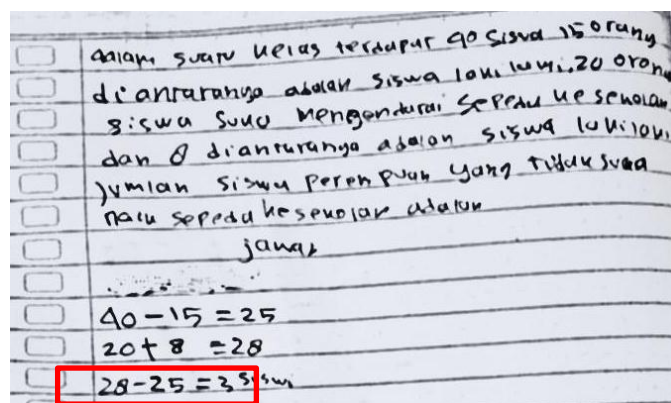 dalam suatu kelas terdapat 40 siswa 15 orang
diantaranya adalah siswa laki laki, 20 orang
siswa suka mengendarai sepeda ke sekolah
dan 8 diantaranya adalah siswa lakilaki
jumlah siswa perempuan yang tidak suka
naik sepeda kesekolah adalah
jawab
40-15=25
20+8=28
28-25=3 siswi